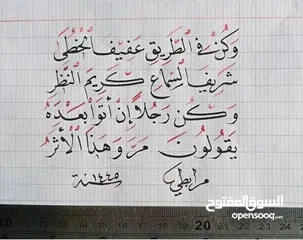 وكن في الطريق عفيف الخطى
شريف السماع كريم النظر
وكن رجلاً إن أتوا بعده
يقولون مر وهذا الأثر
سنة ١٤٤٥
السوق المفتوح
opensooq.com
20 21 22 23 24